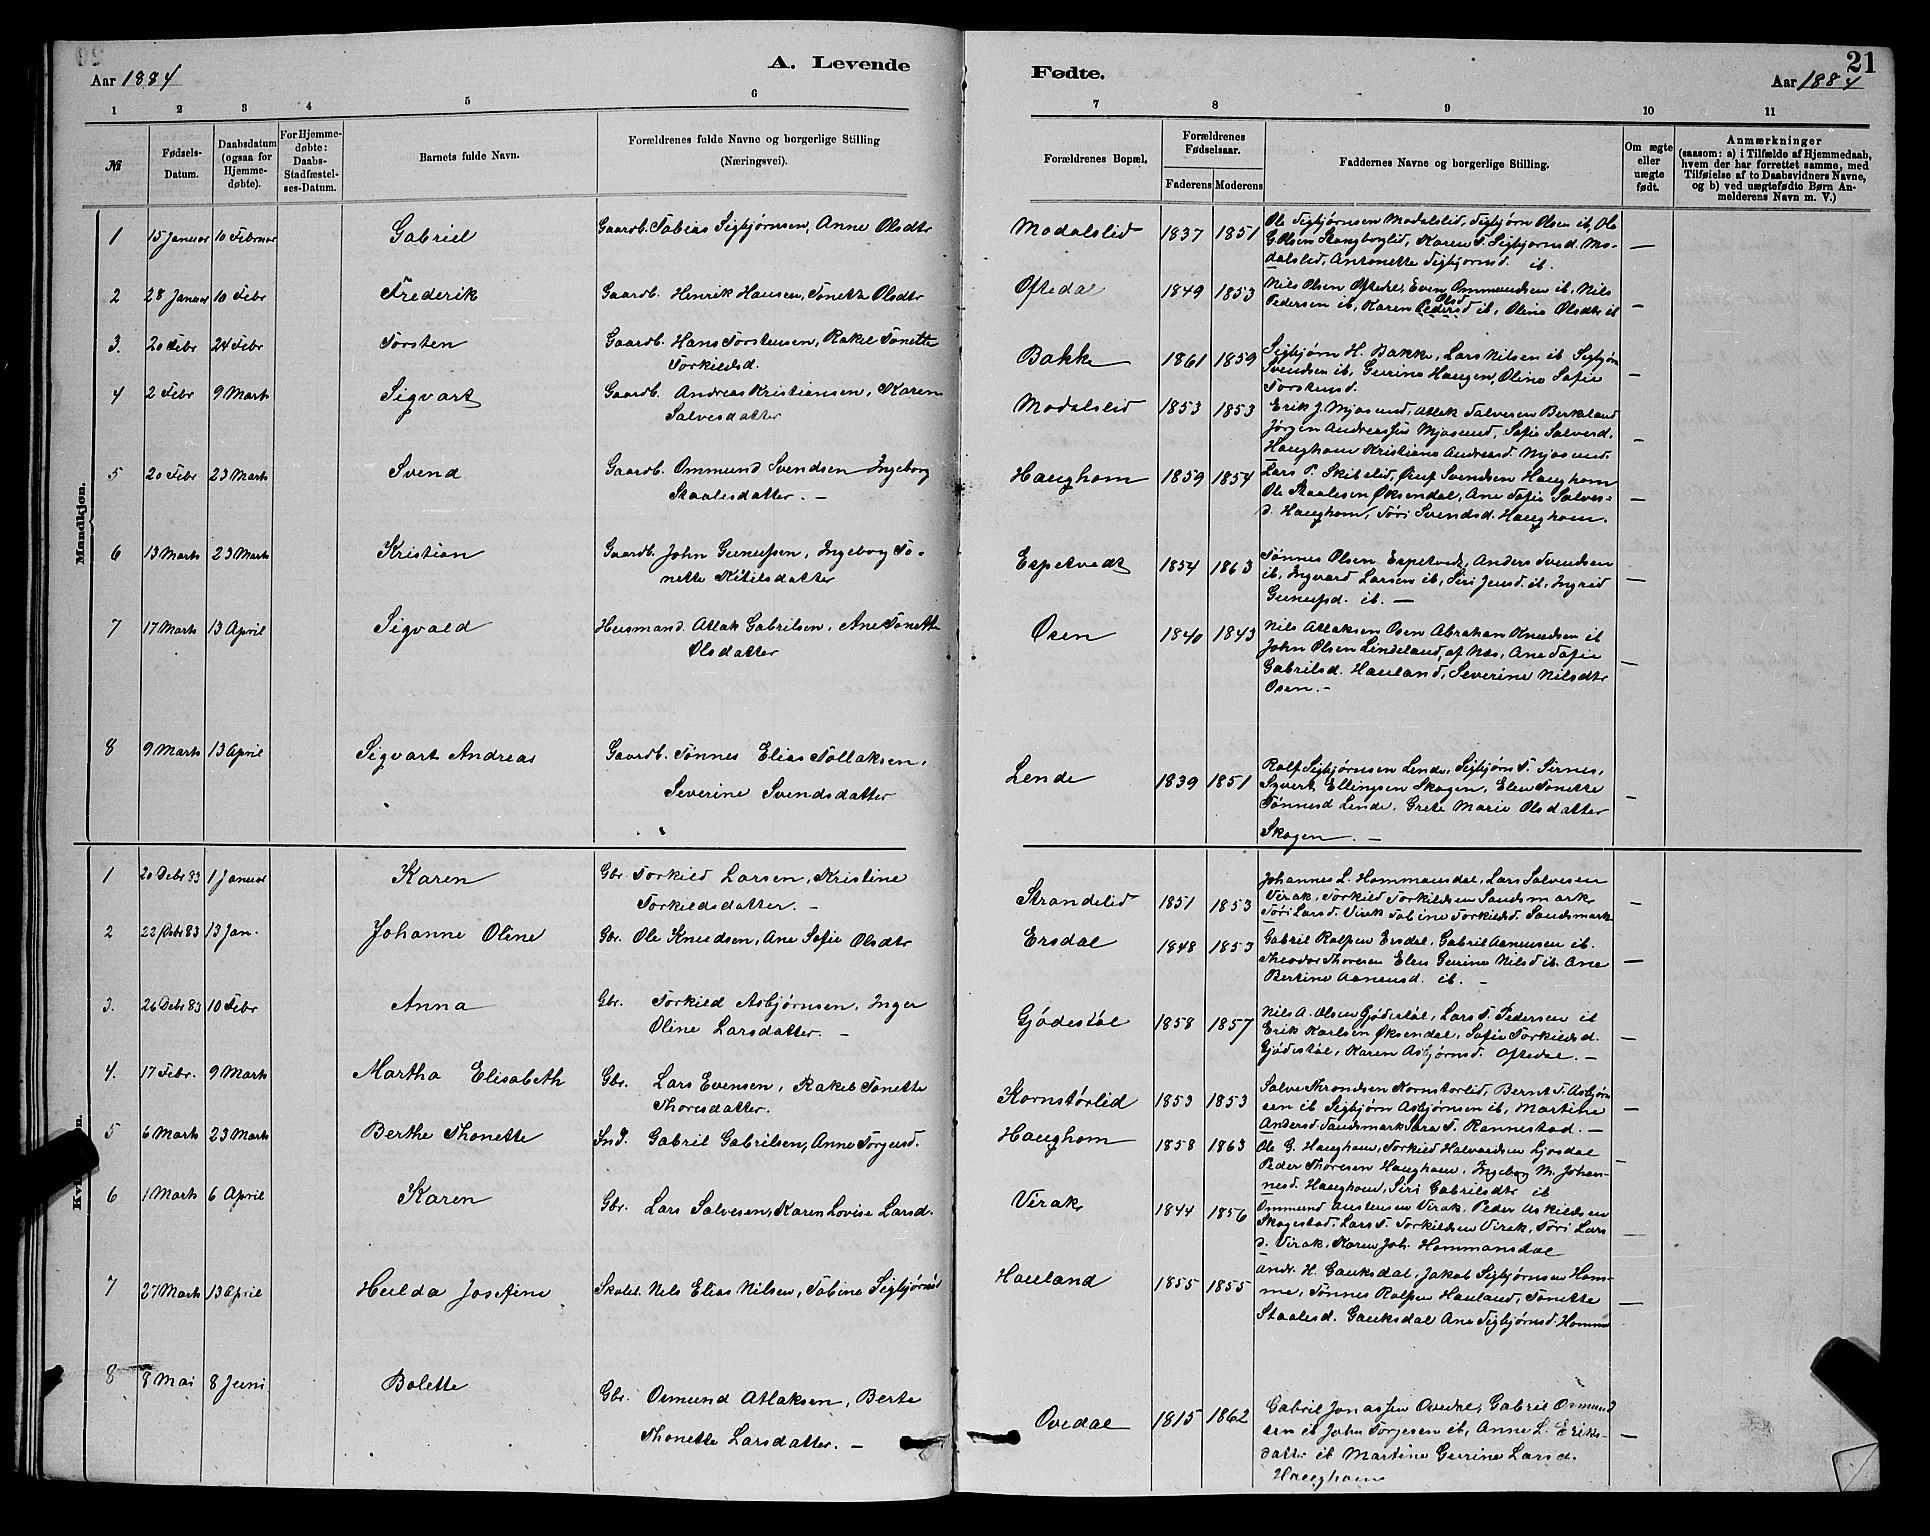 21
A. Levende Fødte.
Aar 1884
Aar 1884
1 2 3 4 5 6 7 8 9 10 11
№
Fødsels-Datum.
Daabsdatum (ogsaa for Hjemme-døbte).
For Hjemme-døbte: Daabs-Stadfæstel-ses-Datum.
Barnets fulde Navn.
Forældrenes fulde Navne og borgerlige Stilling (Næringsvei).
Forældrenes Bopæl.
Forældrenes Fødselsaar.
Faderens Moderens
Faddernes Navne og borgerlige Stilling.
Om ægte eller uægte født.
Anmærkninger
(saasom: a) i Tilfælde af Hjemmedaab, hvem der har forrettet samme, med Tilføielse af to Daabsvidners Navne, og b) ved uægtefødte Børn An-melderens Navn m. V.)
Mandkjøn.
1 15 Januar 10 Februar Gabriel Gaardb. Tobias Sigbjørnsen, Anne Olsdtr Modalslid 1837 1851 Ole Sigbjørnsen Modalslid, Sigbjørn Olsen ib, Ole
G. Olsen Stangborglid, Karen T. Sigbjørnsd. Mo-
dalslid, Antonette Sigbjørnsd. ib. —
2 28 Januar 10 Febr Frederik Gaardb. Henrik Hansen, Tonette Olsdtr Oftedal 1849 1853 Nils Olsen Oftedal, Even Ommundsen ib, Nils
Pedersen ib, Karen Pedersd ib, Oline Olsdtr ib —
Olsd
3. 20 Febr 24 Febr Torsten Gaardb. Hans Torstensen, Rakel Tonette
Torkildsd. Bakke 1861 1859 Sigbjørn H. Bakke, Lars Nilsen ib Sigbjørn
Svendsen ib, Gurine Haugen, Oline Sofie
Torstensd. —
4 2 Febr 9 Marts Sigvart Gaardb. Andreas Kristiansen, Karen
Salvesdatter Modalslid 1853 1853 Erik J. Mjosund, Atlak Salvesen Berkeland
Jørgen Andreassen Mjosund, Sofie Salvesd.
Haughom Kristiane Andreasd. Mjosund. —
5 20 Febr 23 Marts Svend Gaardb. Ommund Svendsen Ingeborg
Staalesdatter. — Haughom 1859 1854 Lars P. Skibelid, Svendsen Haughom
Ole Staalesen Øksendal, Ane Sofie Salves-
d. Haughom, Tori Svendsd. Haughom. —
6 13 Marts 23 Marts Kristian Gaardb. John Gunufsen, Ingeborg To-
nette Kitilsdatter Espetvedt 1854 1863 Tønnes Olsen Espetvedt, Anders Svendsen
ib, Ingvard Larsen ib, Siri Jensd. ib, Ingrid
Gunufsd. ib. — —
7 17 Marts 13 April Sigvald Husmand. Atlak Gabrilsen, Ane Tonette
Olsdatter Osen 1840 1843 Nils Atlaksen Osen Abraham Knudsen ib
John Olsen Lindeland, af Næs, Ane Sofie
Gabrilsd. Hauland, Severine Nilsdtr
Osen. — —
8 9 Marts 13 April Sigvart Andreas Gaardb. Tønnes Elias Tollaksen,
Severine Svendsdatter Lende 1839 1851 Rolf Sigbjørnsen Lende, Sigbjørn T. Sirnes,
Syvert Ellingsen Skogen, Elen Tonette
Tønnesd Lende, Grete Marie Olsdatter
Skogen. — —
1 20 Debr 83 1 Januar Karen Gbr. Torkild Larsen, Kristine
Torkildsdatter. — Strandelid 1851 1853 Johannes L. Hommansdal, Lars Salvesen
Virak, Torkild Torkildsen Sandsmark
Tori Larsd. Virak Tabine Torkildsd. Sandsmark —
2 22 Debr 83 13 Jan. Johanne Oline Gbr. Ole Knudsen, Ane Sofie Olsdtr Ersdal 1848 1853 Gabril Rolfsen Ersdal, Gabril Aanensen ib.
Theodor Thoresen Elen Gurine Nilsd ib. Ane
Bertine Aanensd. ib. — —
3. 26 Debr 83 10 Febr Anna Gbr. Torkild Asbjørnsen, Inger
Oline Larsdatter. — Gjødestøl 1858 1857 Nils A. Olsen Gjødestøl, Lars T. Pedersen ib
Erik Karlsen Øksendal, Sofie Torkildsd.
Gjødestøl, Karen Asbjørnsd. Oftedal. — —
4. 17 Febr. 9 Marts Martha Elisabeth Gbr. Lars Evensen, Rakel Tonette
Thoresdatter. Kornstørlid 1853 1853 Salve Throndsen Kornstorlid, Bernt T. Asbjørn
sen ib Sigbjørn Asbjørnsen ib, Martine
Andersd. Sandsmark Sara T. Rannestad. — —
5 6 Marts 23 Marts Berthe Thonette Ind. Gabril Gabrilsen, Anne Torgersd. Haughom 1858 1863 Ole G. Haughom, Torkild Halvardsen Ljosdal
Peder Thoresen Haughom, Ingeborg M. Johan-
nesd. Haughom, Siri Gabrilsdtr ib —
6 1 Marts 6 April Karen Gbr. Lars Salvesen, Karen Lovise Larsd. Virak 1844 1856 Ommund Austensen Virak, Peder Askildsen
Skogestad, Lars T. Torkildsen Virak, Tori Lars
d. Virak, Karen Joh. Hommansdal —
7 27 Marts 13 April Hulda Josefine Skolel. Nels Elias Nilsen, Tobine Sigbjørnsd Hauland 1855 1855 Andr. H. Gauksdal, Jakob Sigbjørnsen Hom-
me, Tønnes Rolfsen Hauland, Tonette
Staalesd. Gauksdal Ane Sigbjørnsd. Homme —
8 8 Mai 8 Juni Bolette Gbr. Osmund Atlaksen, Berte
Thonette Larsdatter. — Ovedal 1815 1862 Gabril Jonassen Ovedal, Gabril Osmund
sen ib John Torjesen ib, Anne L. Eriks-
datter ib Martine Gurine Larsd.
Haughom —